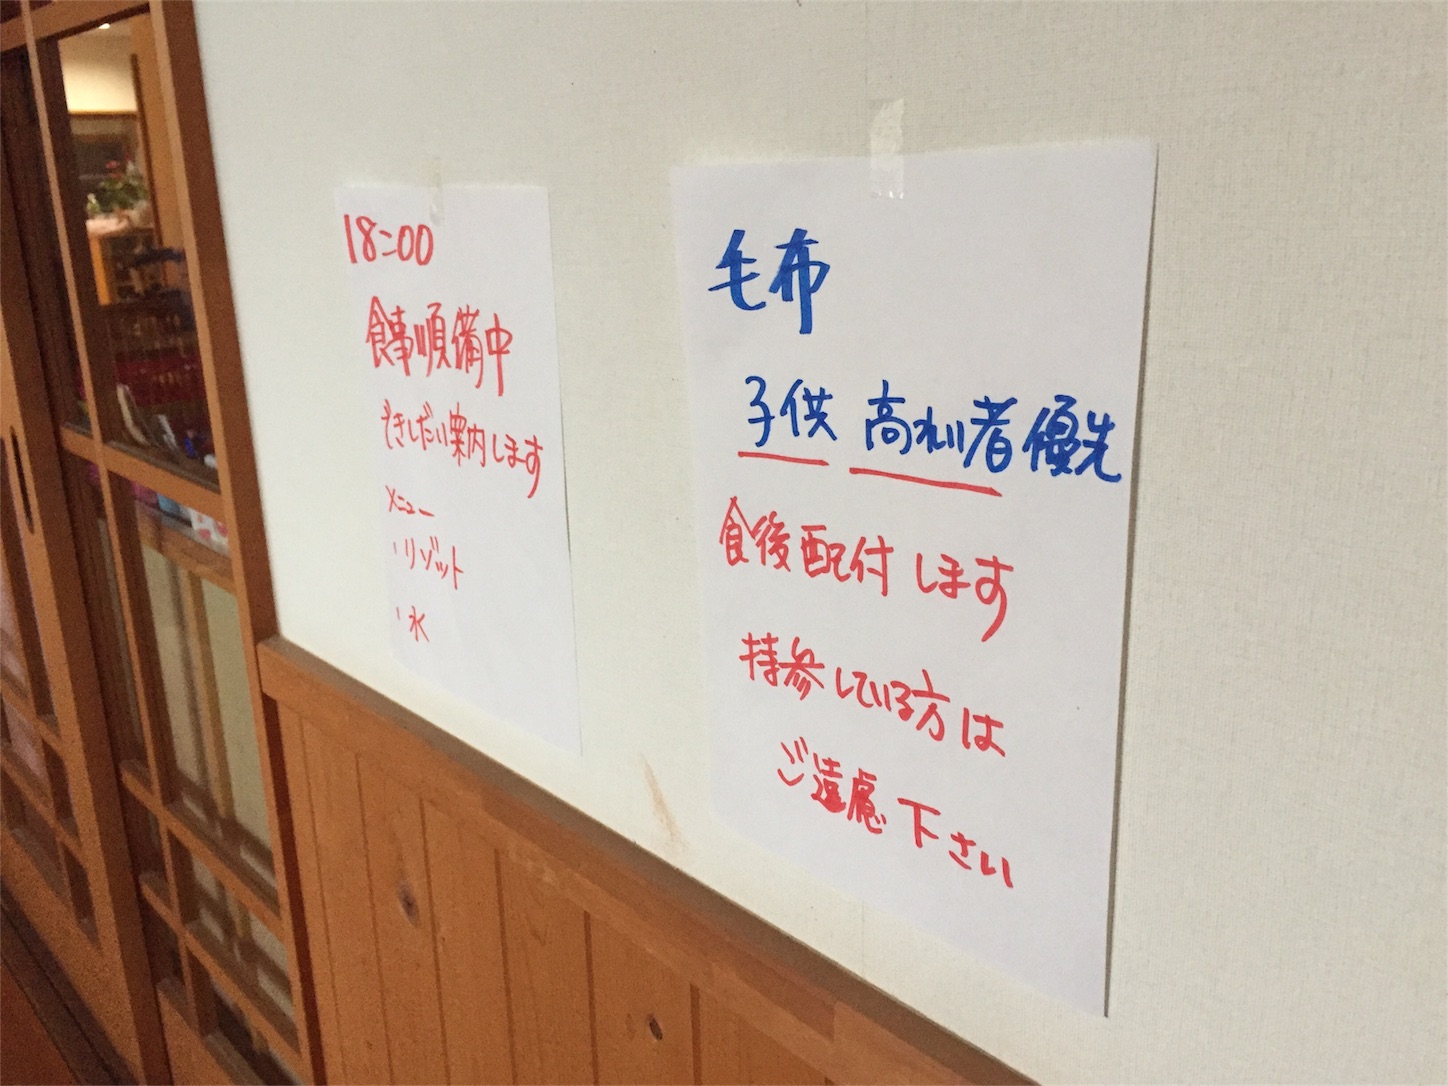 18:00
食事順備中
できしだい案内します
メニュー
・リゾット
・水
毛布
子供 高れい者優先
食後配付します
持参している方は
ご遠慮下さい